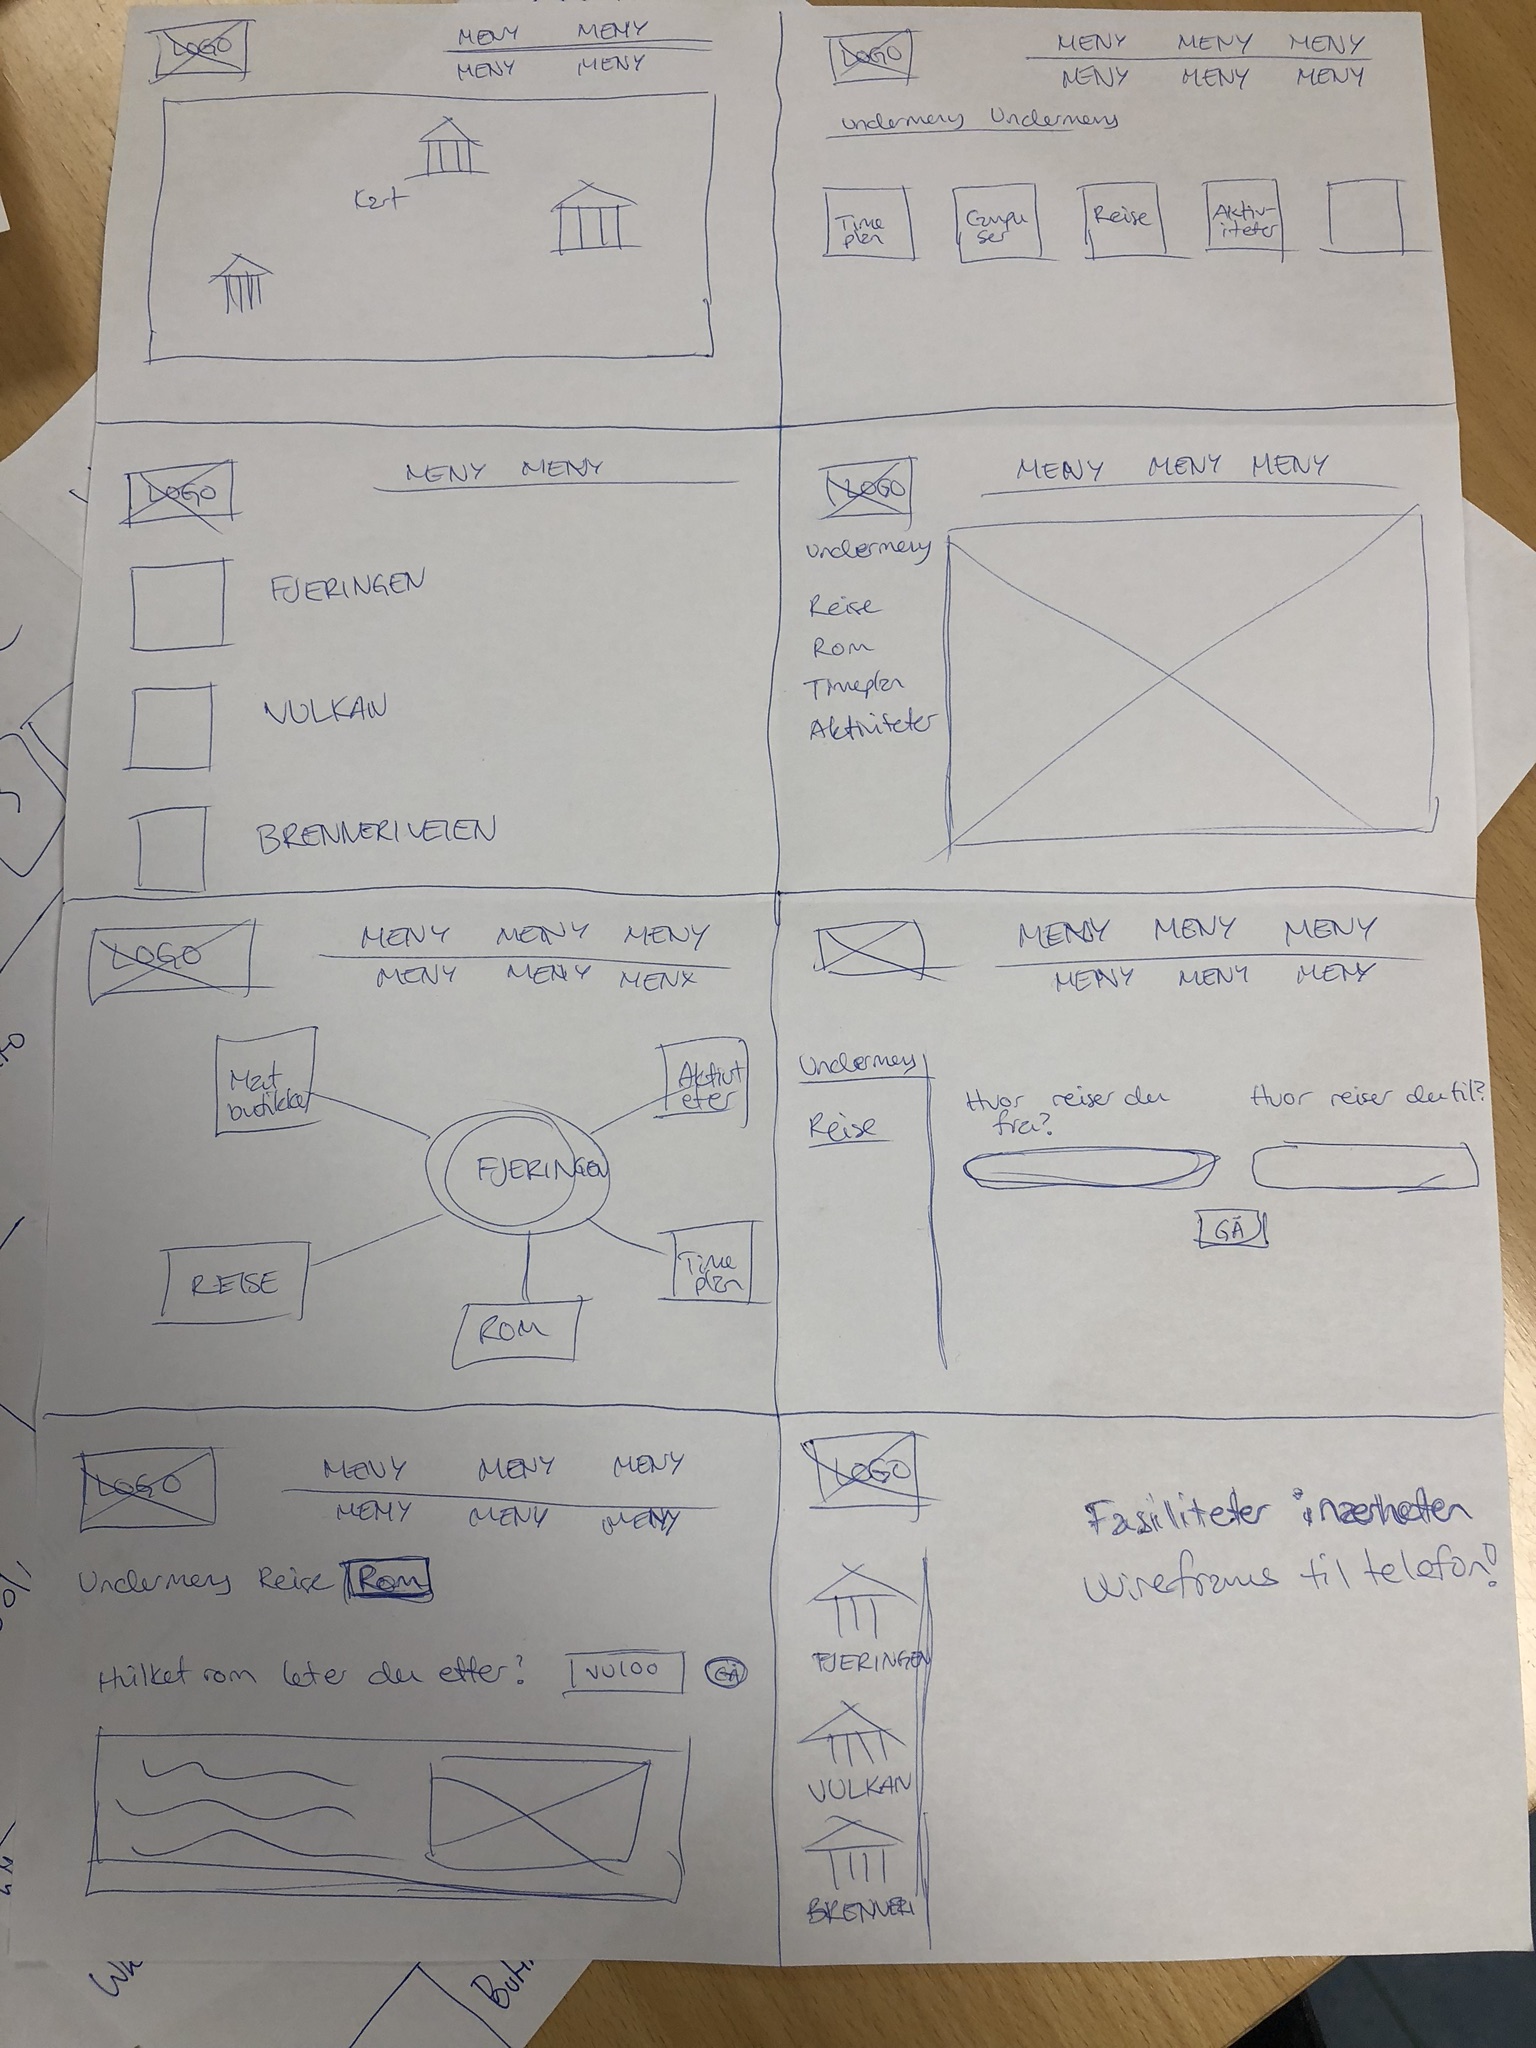 LOGO
MENY MENY
MENY MENY
Kart
LOGO
MENY MENY MENY
MENY MENY MENY
Undermeny Undermeny
Time
plan
Campu
ser
Reise
Aktiv-
iteter
LOGO
MENY MENY
FJERINGEN
VULKAN
BRENNERIVEIEN
LOGO
MENY MENY MENY
Undermeny
Reise
Rom
Timeplan
Aktiviteter
LOGO
MENY MENY MENY
MENY MENY MENY
Mat
butikker
Aktivt
eter
FJERINGEN
REISE
ROM
Time
plan
MENY MENY MENY
MENY MENY MENY
Undermeny
Reise
Hvor reiser du
fra?
Hvor reiser du til?
GÅ
LOGO
MENY MENY MENY
MENY MENY MENY
Undermeny Reise Rom
Hvilket rom leter du etter? VU100 GÅ
LOGO
FJERINGEN
VULKAN
BRENNERI
Fasiliteter i nærheten
Wireframs til telefon!